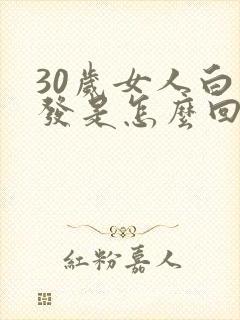 30歲女人白
發是怎麼回
紅粉嘉人